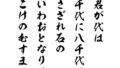 君が代は
千代に八千代に
さざれ石の
いわおとなりて
こけのむすまで